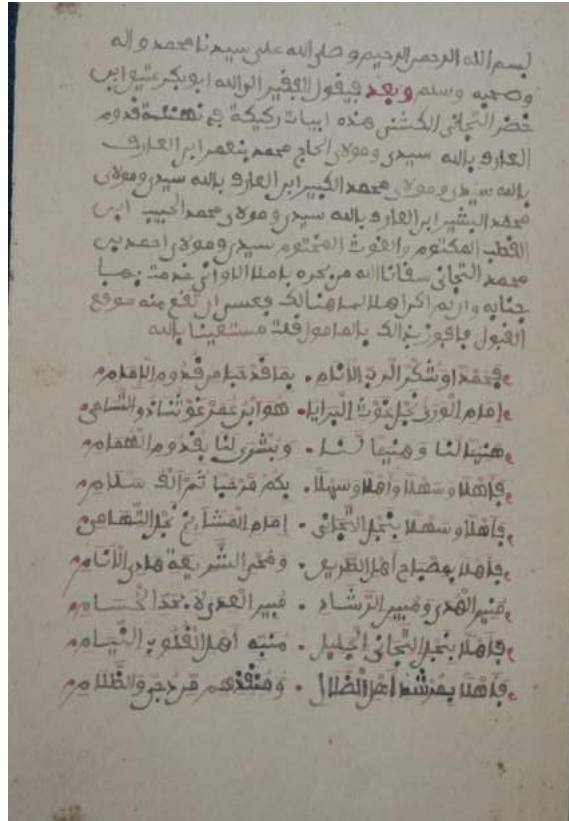 بسم الله الرحمن الرحيم وصلى الله على سيدنا محمد واله
وصحبه وسلم وبعد فيقول الفقير الى الله ابوبكر عتيق ابن
خضر التجانى الكشنى هذه ابيات ركيكة في تهنئة قدوم
العارف بالله سيدى ومولاى الحاج محمد بنعمر ابن العارف
بالله سيدى ومولاى محمد الكبير ابن العارف بالله سيدى ومولاى
محمد البشير ابن العارف بالله سيدى ومولاى محمد الحبيب ابن
القطب المكتوم والغوث المختوم سيدى ومولاى احمد بن
محمد التجانى سقانا الله من بحره باملا الاوانى خدمت بها
جنابه وان لم اكن اهلا لما هنالك فعسى ان تقع منه موقع
القبول فافوز بذالك بالمامول قلت مستعينا بالله
فحمدا وشكرا لرب الانام • بما قد حبا من قدوم الامام
امام الورى نجل غوث البرايا • هو ابن عمر غوثنا ذو التسامى
هنيئا لنا وهنيئا لنا • وبشرى لنا بقدوم الهمام
فاهلا وسهلا واهلا وسهلا • بكم مرحبا ثم الف سلام
فاهلا وسهلا بنجل التجانى • امام المشائخ نجل التهام
فاهلا بمصباح اهل الطريق • وفخر الشريعة هادى الانام
منير الهدى ومبين الرشاد • مبير العدى لا بحد الحسام
فاهلا بنجل التجانى الجليل • منبه اهل القلوب النيام
فاهلا بمرشد اهل الضلال • ومنقذهم من دجى والظلام